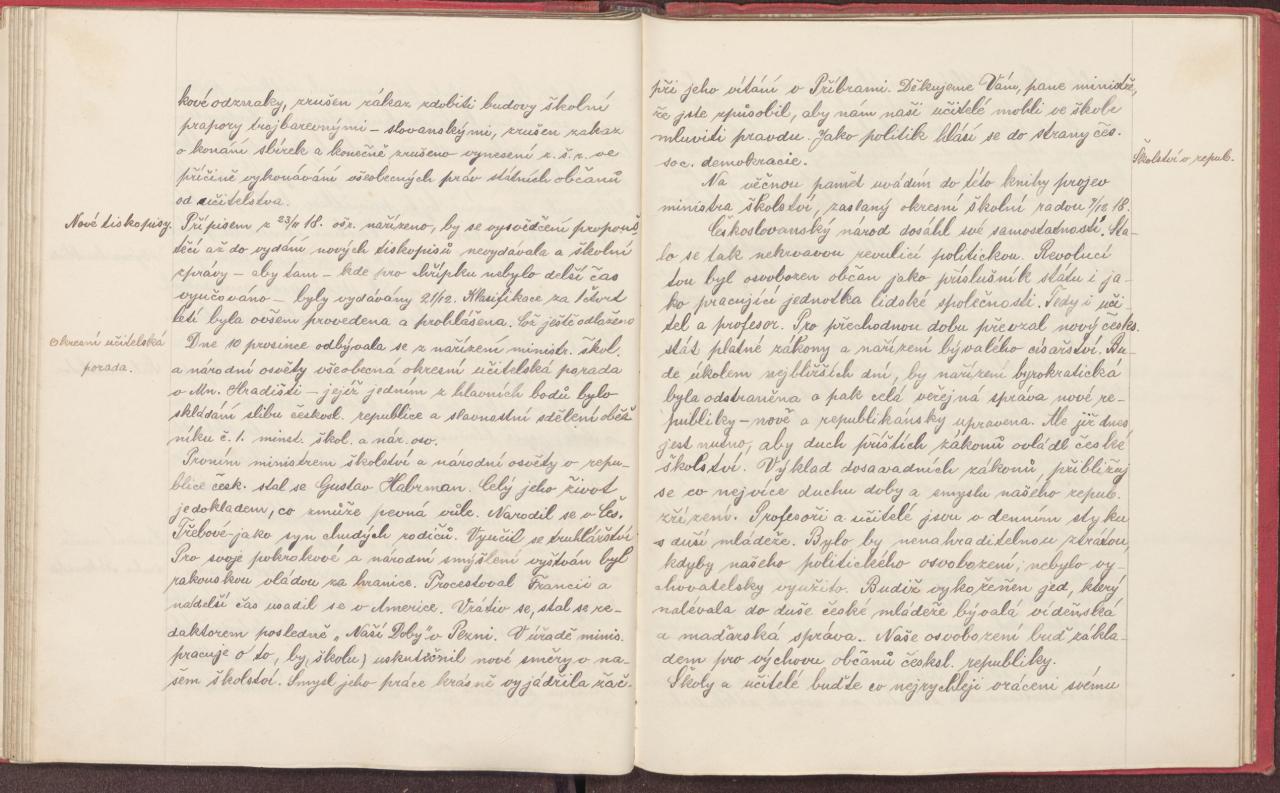 kové odznaky, zrušen zákaz zdobiti budovy školní
prapory trojbarevnými – slovanskými, zrušen zakaz
o konání sbírek a konečně zrušeno vynesení z. š. r. ve
příčině vykonávání všeobecných práv státních občanů
od učitelstva.
Nové tiskopisy.
Přípisem z 23/11 18. ošr. nařízeno, by se vysvědčení propouš-
těcí až do vydání nových tiskopisů nevydávala a školní
zprávy – aby tam – kde pro chřipku nebylo delší čas
vyučováno – byly vydávány 21/12. Klasifikace za 1 čtvrt
letí byla ovšem provedena a prohlášena. Což ještě odloženo
Okresní učitelská
porada.
Dne 10 prosince odbývala se z nařízení ministr. škol.
a národní osvěty všeobecná okresní učitelská porada
v Mn. Hradišti – jejíž jedním z hlavních bodů bylo
skládání slibu českosl. republice a slavnostní sdělení oběž-
níku č. 1. minst. škol. a nár. osv.
Prvním ministrem školství a národní osvěty v repu-
blice česk. stal se Gustav Habrman. Celý jeho život
jedokladem, co zmůže pevná vůle. Narodil se v Čes.
Třebové jako syn chudých rodičů. Vyučil se truhlářství
Pro svoje pokrokové a národní smýšlení vyštván byl
rakouskou vládou za hranice. Procestoval Francii a
nadelší čas usadil se v Americe. Vrátiv se, stal se re-
daktorem posledně „Naší Doby" v Pezni. V úřadě minis.
pracuje o to, by (školu) uskutečnil nové směry v na-
šem školství. Smysl jeho práce krásně vyjádřila žač.
při jeho vítání v Příbrami. Děkujeme Vám, pane ministře,
že jste způsobil, aby nám naši učitelé mohli ve škole
mluviti pravdu. Jako politik hlásí se do strany čes.
soc. demokracie.
Školství v repub.
Na věčnou paměť uvádím do této knihy projev
ministra školství, zaslaný okresní školní radou 7/12 18.
Českoslovanský národ dosáhl své samostatnosti. Sta-
lo se tak nekrvavou revolucí politickou. Revolucí
tou byl osvobozen občan jako příslušník státu i ja-
ko pracující jednotka lidské společnosti. Tedy i uči-
tel a profesor. Pro přechodnou dobu převzal nový česks.
stát platné zákony a nařízení bývalého císařství. Bu-
de úkolem nejbližších dní, by nařízení byrokratická
byla odstraněna a pak celá veřejná správa nové re-
publiky – nově a republikánsky upravena. Ale již dnes
jest nutno, aby duch příštích zákonů ovládl české
školství. Výklad dosavadních zákonů, přibližuj
se co nejvíce duchu doby a smyslu našeho repub.
zřízení. Profesoři a učitelé jsou v denním styku
s duší mládeže. Bylo by nenahraditelnou ztrátou,
kdyby našeho politického osvobození, nebylo vy-
chovatelsky využito. Budiž vykořeněn jed, který
nalévala do duše české mládeže bývalá vídeňská
a maďarská správa. Naše osvobození buď zákla-
dem pro výchovu občanů českosl. republiky.
Školy a učitelé buďte co nejrychleji vráceni svému